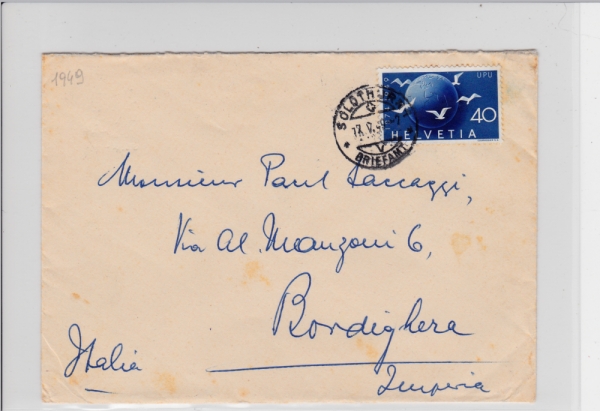 1949
UPU
40
HELVETIA
SOLOTHURN 1
BRIEFAMT
Monsieur Paul Saccaggi,
Via Al. Manzoni 6,
Bordighera
Italia
Imperia